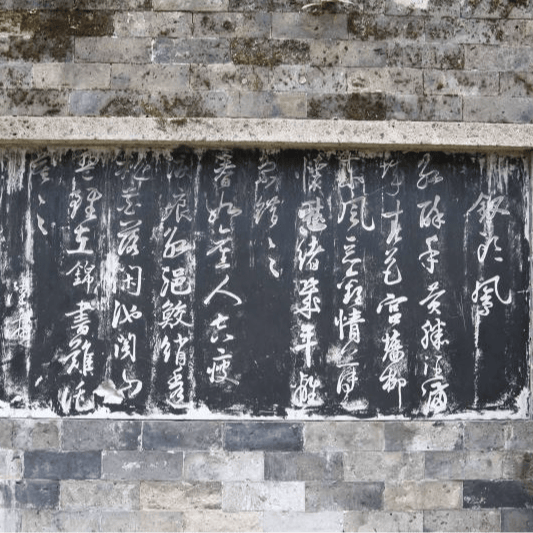 釵頭鳳
紅酥手黃縢酒滿
城春色宮牆柳
東風惡歡情薄
懷愁緒幾年離
索錯々々
春如舊人空瘦
淚痕紅浥鮫綃透
桃花落閒池閣山
盟雖在錦書難託
莫々々